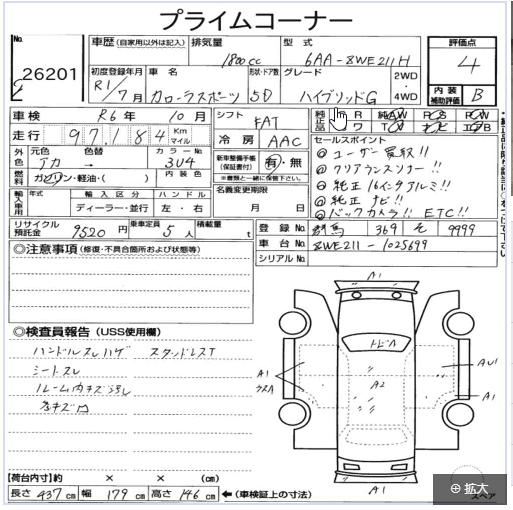 プライムコーナー
No. 26201
車歴 (自家用以外は記入) 排気量 1800cc 型式 6AA-ZWE211H 評価点 4
初度登録年月 R1/7月 車名 カローラスポーツ 形状・ドア数 5D グレード ハイブリッドG 2WD・4WD 内装補助評価 B
車検 R6年 10月 シフト FAT
純正品 R AW PS PW
走行 97,184 Km マイル 冷房 AAC
W TV
セールスポイント
外色 元色 アカ → 色替 カラーNo. 3U4
新車整備手帳(保証書付) 有・無
※書類と一緒に保管下さい。
燃料 ガソリン・軽油・( ) 内装色
◎ユーザー買取!!
◎クリアランスソナー!!
◎純正16インチアルミ!!
◎純正ナビ!!
◎バックカメラ!! ETC!!
輸入車用 年式 輸入区分 ディーラー・並行 ハンドル 左・右
名義変更期限 月 日
リサイクル預託金 9520円 乗車定員 5人 積載量 t
登録No. 群馬 369 そ 9999
車台No. ZWE211-1025699
シリアルNo.
◎注意事項 (修復・不具合箇所および状態等)
◎検査員報告 (USS使用欄)
ハンドルスレハゲ スタッドレスT
シートスレ
ルーム内キズ汚れ
A1
トビA
A2
A1
AU1
A1
A1
【荷台内寸】約 × × (cm)
長さ 437cm 幅 179cm 高さ 146cm ←(車検証上の寸法)
スペア
拡大